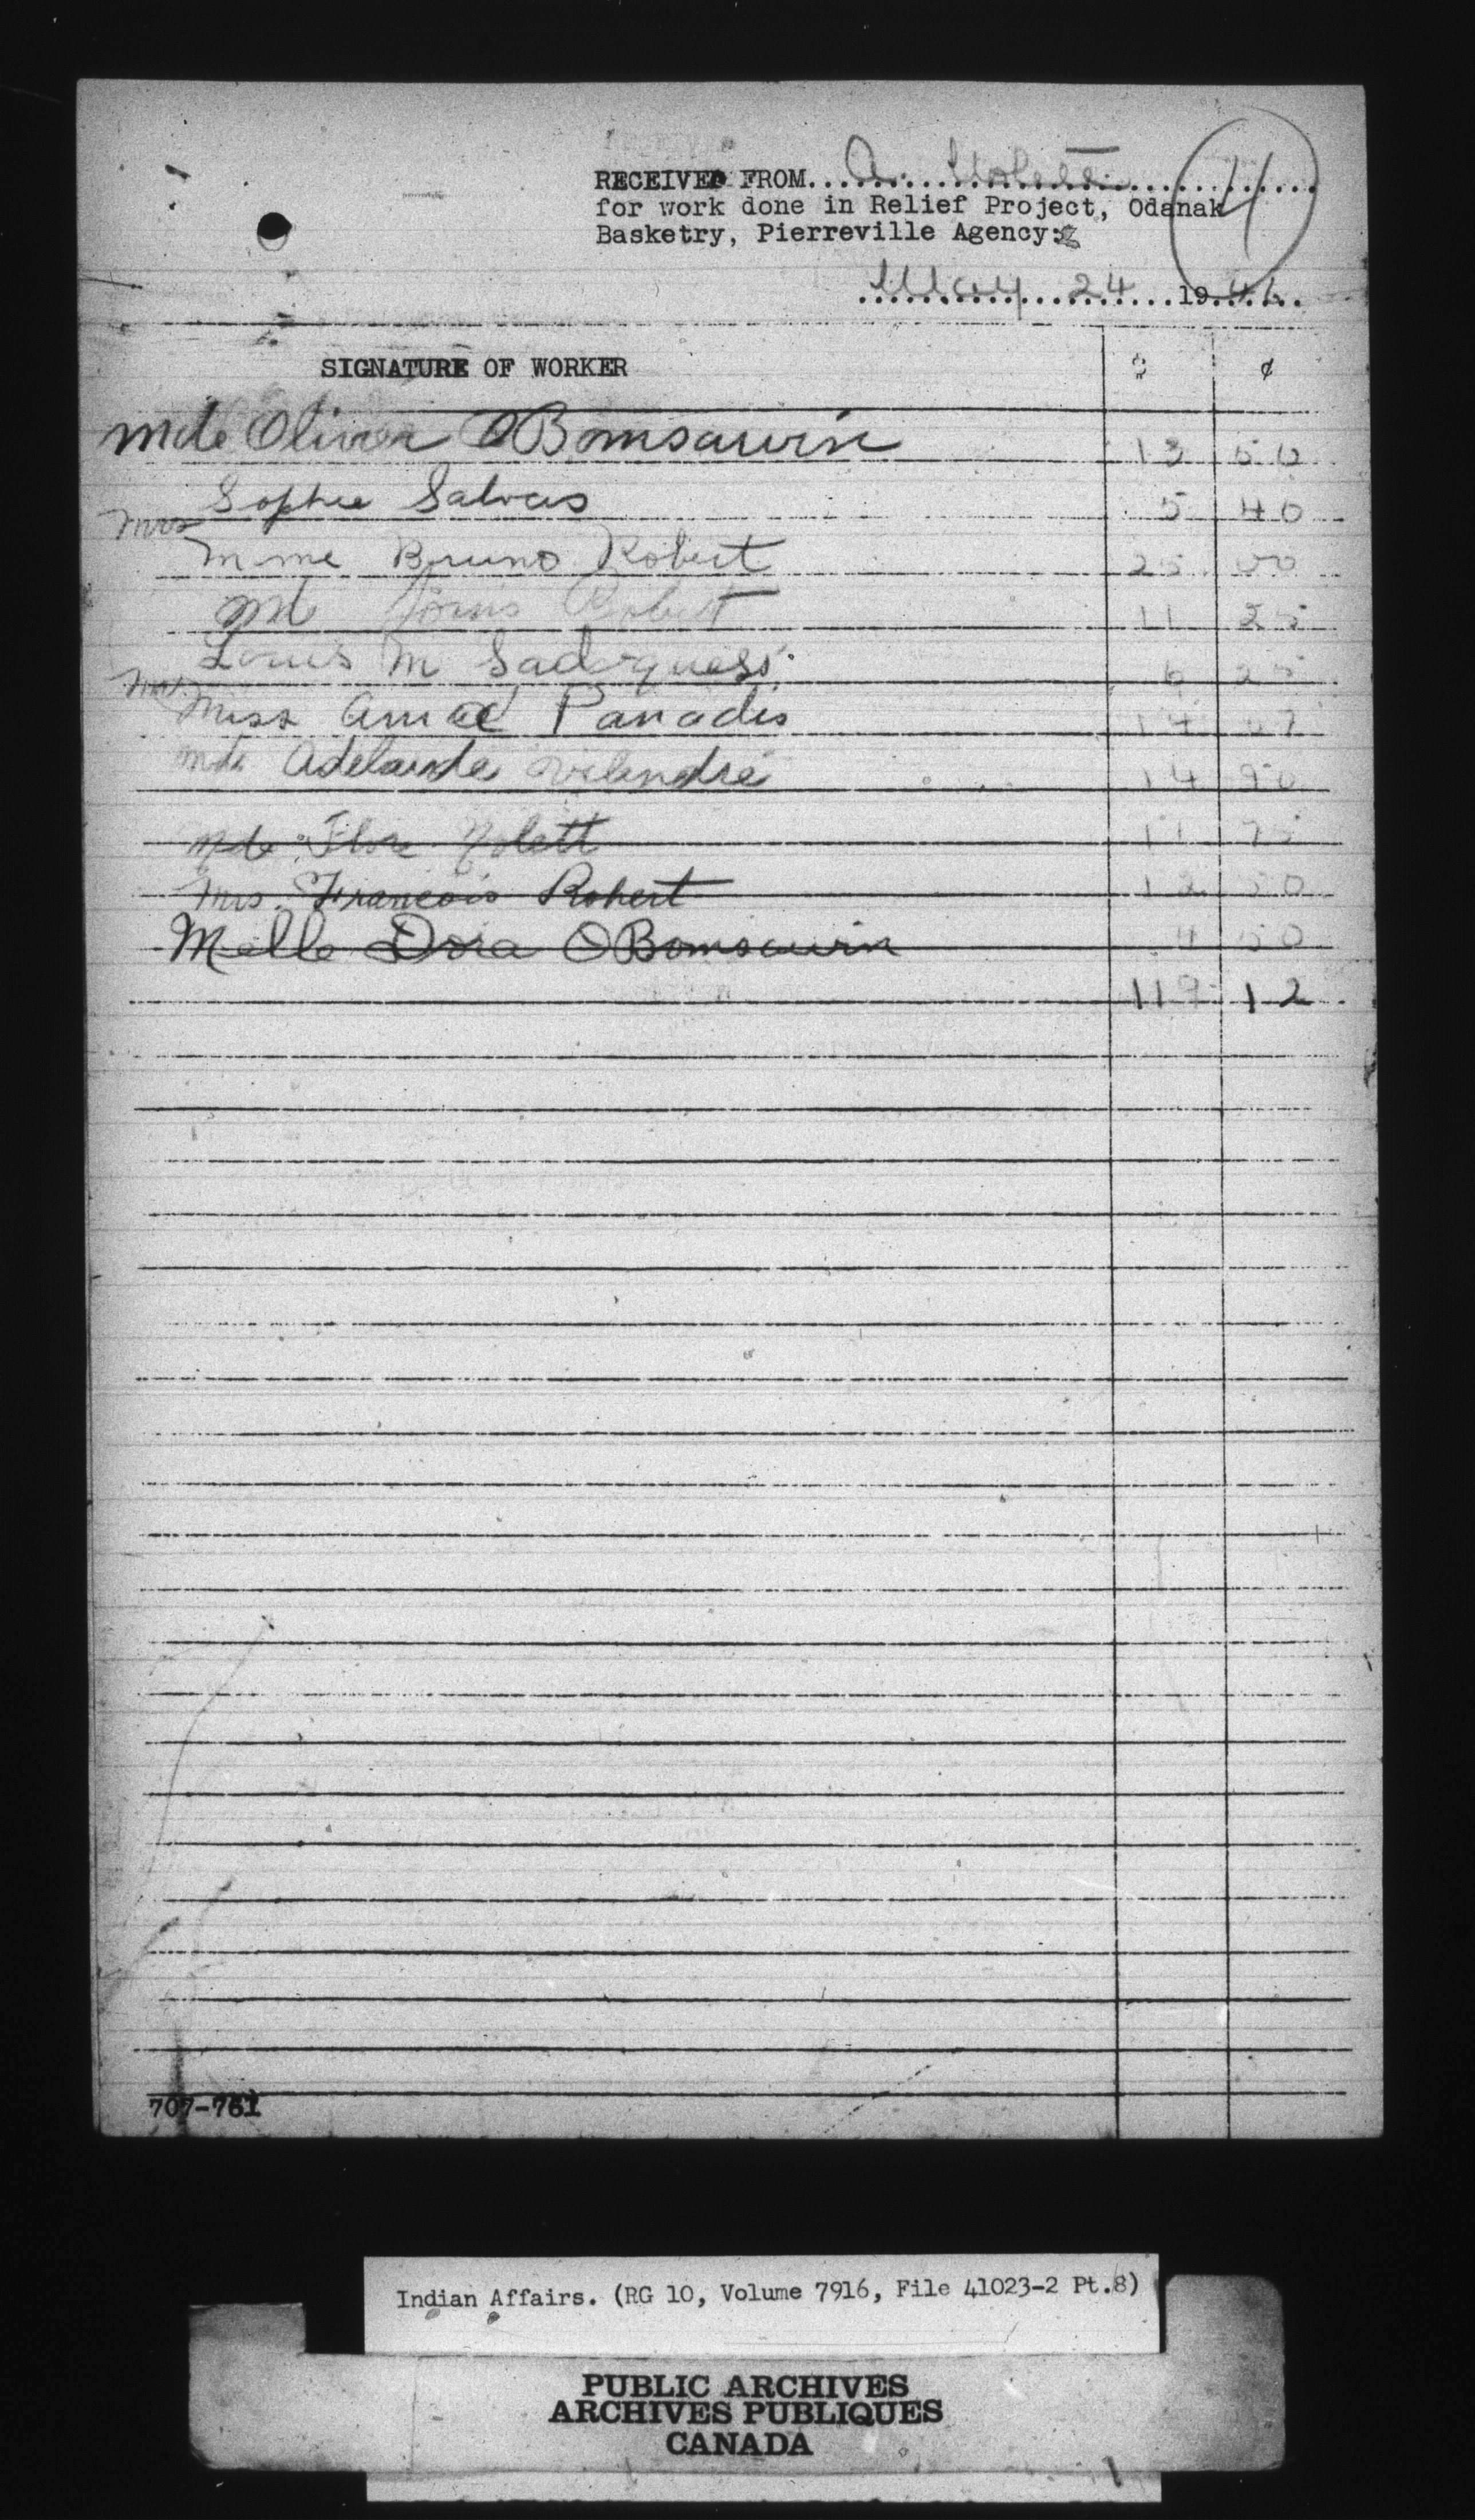 RECEIVED FROM A.
for work done in Relief Project, Odanak
Basketry, Pierreville Agency:
4
May 24 1941.
SIGNATURE OF WORKER $ ¢
Mde Oliver OBomsawin 13 50
Mrs Sophie Salvas 5 40
Mme Bruno Robert 25 00
Md Robert 11 25
Louis M Sadoques 6 25
Miss Panadis 14 07
Mde Adelaide 14 90
Mde Flore 11 75
Mrs. Francois Robert 12 50
Melle Dora OBomsawin 4 50
119 12
707-761
Indian Affairs. (RG 10, Volume 7916, File 41023-2 Pt.8)
PUBLIC ARCHIVES
ARCHIVES PUBLIQUES
CANADA